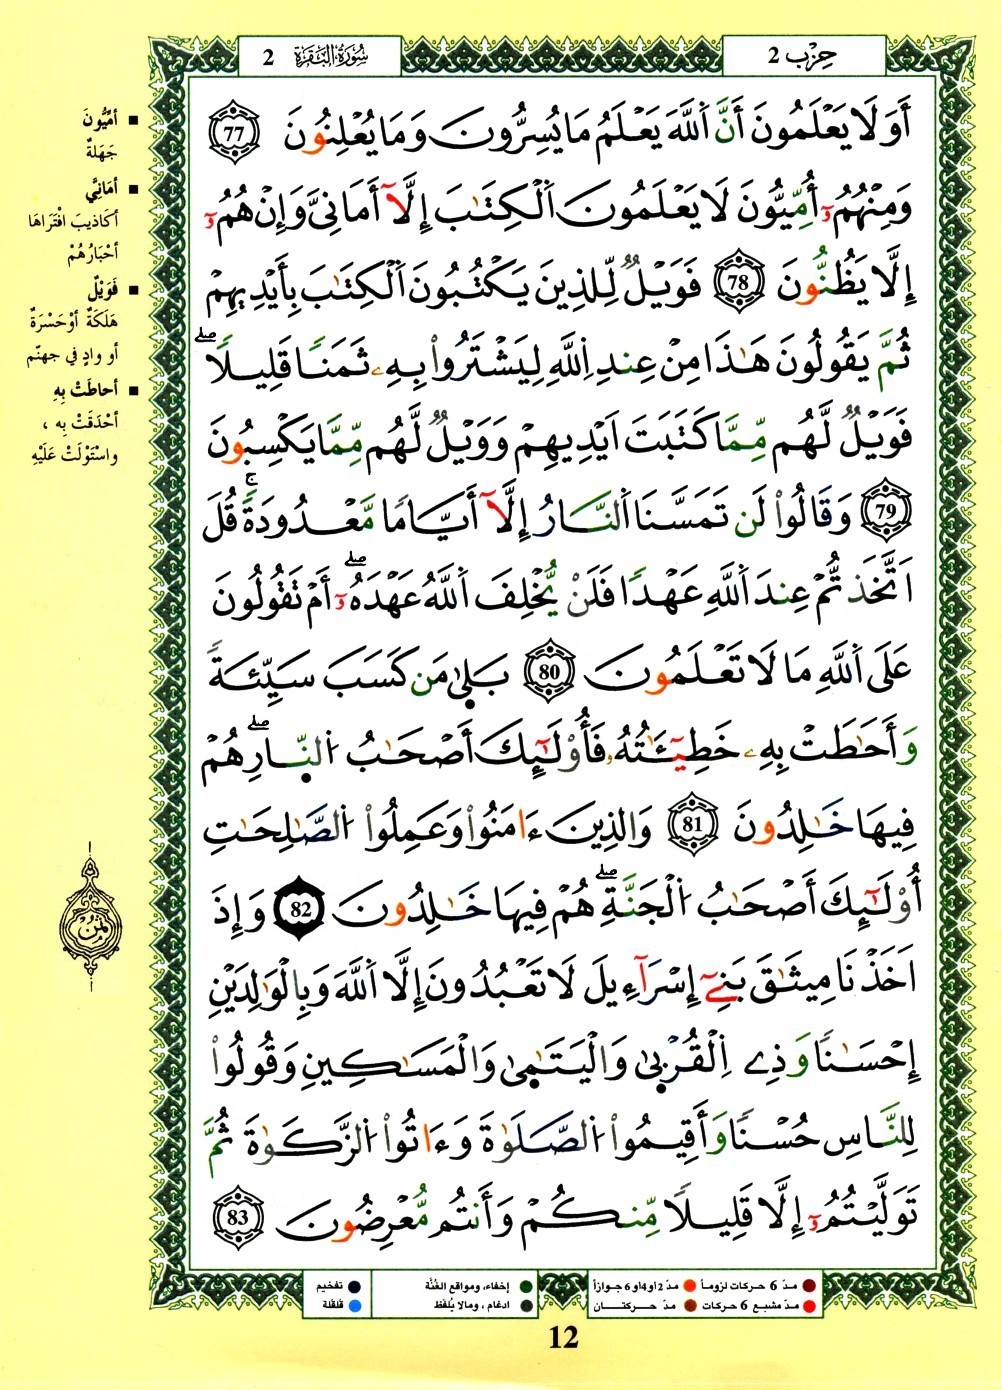 حِزْب 2
سُورَةُ الْبَقَرَةِ 2
أَوَلَا يَعْلَمُونَ أَنَّ اَ۬للَّهَ يَعْلَمُ مَا يُسِرُّونَ وَمَا يُعْلِنُونَ 77
وَمِنْهُمُۥٓ أُمِّيُّونَ لَا يَعْلَمُونَ اَ۬لْكِتَٰبَ إِلَّآ أَمَانِيَّ وَإِنْ هُمُۥٓ
إِلَّا يَظُنُّونَ 78 فَوَيْلٌ لِّلذِينَ يَكْتُبُونَ اَ۬لْكِتَٰبَ بِأَيْدِيهِمْ
ثُمَّ يَقُولُونَ هَٰذَا مِنْ عِندِ اِ۬للَّهِ لِيَشْتَرُواْ بِهِۦ ثَمَنًا قَلِيلًاۖ
فَوَيْلٌ لَّهُم مِّمَّا كَتَبَتَ اَيْدِيهِمْ وَوَيْلٌ لَّهُم مِّمَّا يَكْسِبُونَ
79 وَقَالُواْ لَن تَمَسَّنَا اَ۬لنَّارُ إِلَّآ أَيَّامًا مَّعْدُودَةًۚ قُلَ
اَتَّخَذتُّمْ عِندَ اَ۬للَّهِ عَهْدًا فَلَنْ يُّخْلِفَ اَ۬للَّهُ عَهْدَهُۥٓۖ أَمْ تَقُولُونَ
عَلَى اَ۬للَّهِ مَا لَا تَعْلَمُونَ 80 بَلَىٰ مَن كَسَبَ سَيِّئَةً
وَأَحَٰطَتْ بِهِۦ خَطِيٓـَٰٔتُهُۥ فَأُوْلَٰٓئِكَ أَصْحَٰبُ اُ۬لنّ۪ارِۖ هُمْ
فِيهَا خَٰلِدُونَ 81 وَالذِينَ ءَامَنُواْ وَعَمِلُواْ اُ۬لصَّٰلِحَٰتِ
أُوْلَٰٓئِكَ أَصْحَٰبُ اُ۬لْجَنَّةِۖ هُمْ فِيهَا خَٰلِدُونَ 82 وَإِذَ
اَخَذْنَا مِيثَٰقَ بَنِےٓ إِسْرَآءِيلَ لَا تَعْبُدُونَ إِلَّا اَ۬للَّهَ وَبِالْوَٰلِدَيْنِ
إِحْسَٰنًا وَذِے اِ۬لْقُرْبَىٰ وَالْيَتَٰمَىٰ وَالْمَسَٰكِينِ وَقُولُواْ
لِلنَّاسِ حُسْنًا وَأَقِيمُواْ اُ۬لصَّلَوٰةَ وَءَاتُواْ اُ۬لزَّكَوٰةَ ثُمَّ
تَوَلَّيْتُمُۥٓ إِلَّا قَلِيلًا مِّنكُمْ وَأَنتُم مُّعْرِضُونَ 83
■ أُمِّيُّونَ
جَهَلةٌ
■ أَمَانِيَّ
أكاذيبَ افْتَرَاهَا
أحْبَارُهُمْ
■ فَوَيْلٌ
هَلَكَةٌ أوْ حَسْرَةٌ
أو وادٍ في جهنّم
■ أحاطَتْ بِهِ
أحْدَقَتْ بِه ،
واسْتَوْلَتْ عَلَيْهِ
ثُمُن
مدّ 6 حركات لزوماً مدّ 2 أو 4 أو 6 جوازاً إخفاء، ومواقع الغُنَّة تفخيم
مدّ مشبع 6 حركات مدّ حركتان ادغام ، وما لا يُلفَظ قلقلة
12